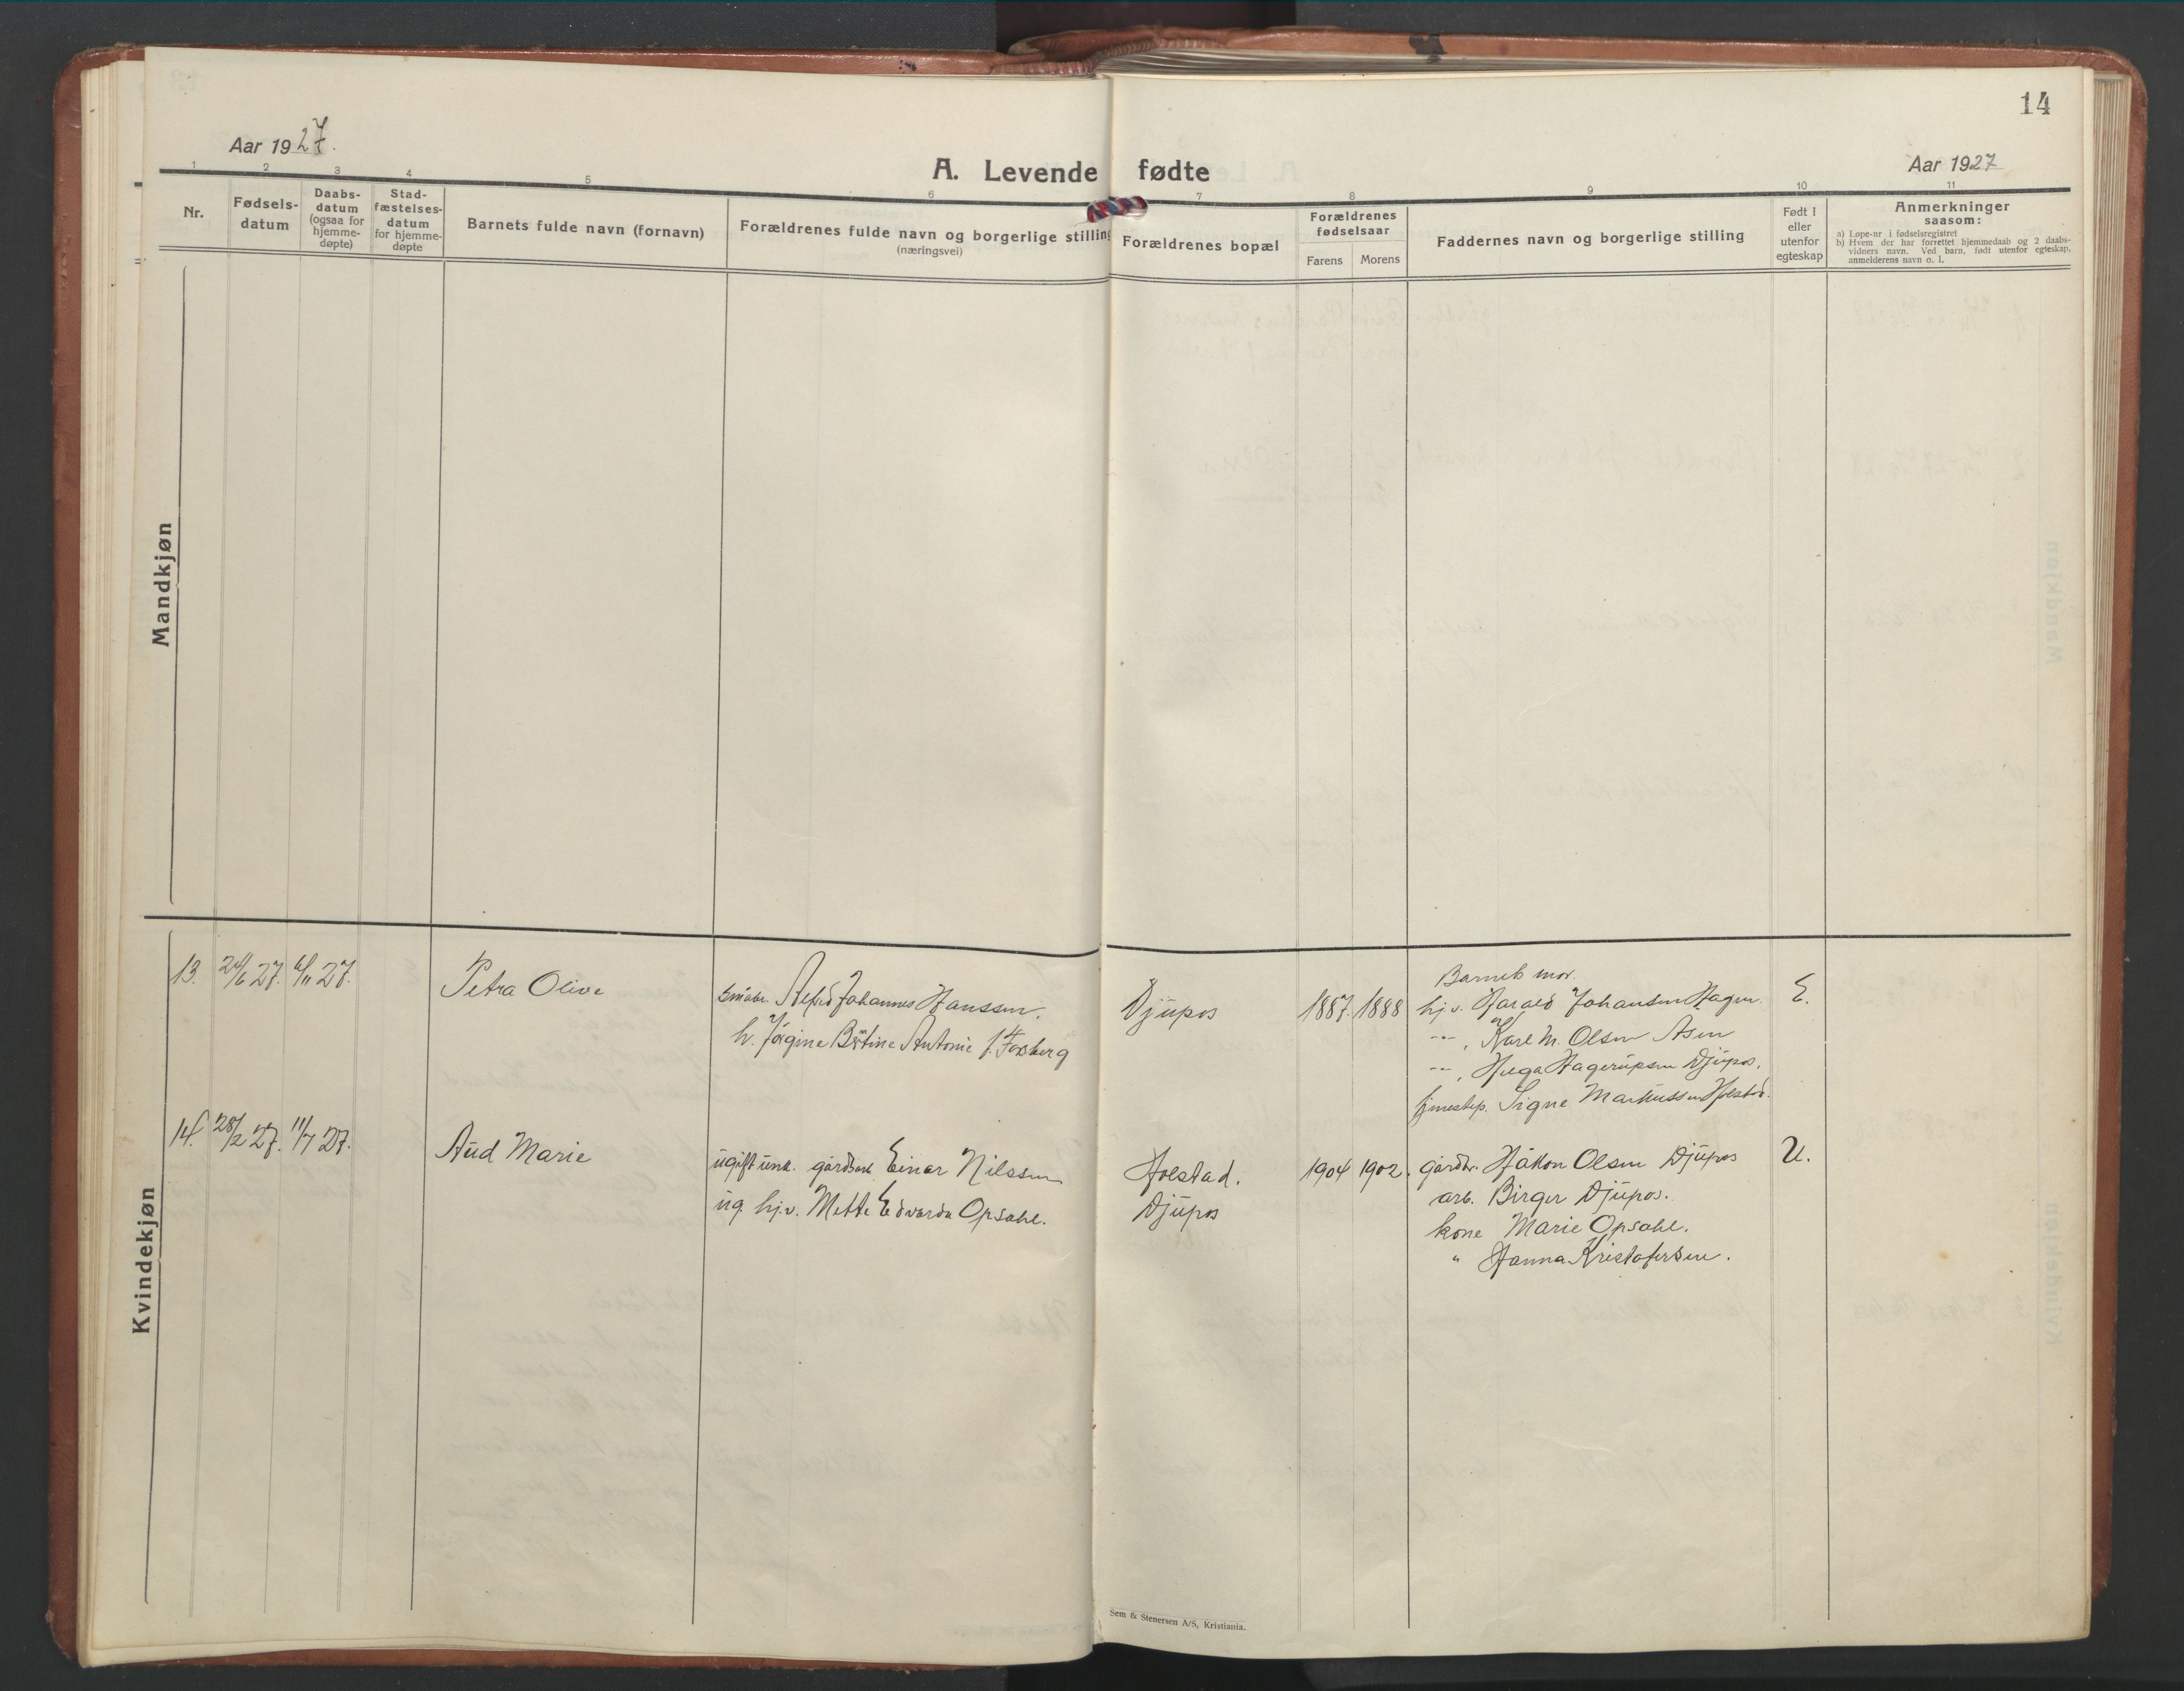 14
Aar 1927.
A. Levende fødte
Aar 1927
1 2 3 4 5 6 7 8 9 10 11
Nr.
Fødsels-
datum
Daabs-
datum
(ogsaa for
hjemme-
døpte)
Stad-
fæstelses-
datum
for hjemme-
døpte
Barnets fulde navn (fornavn)
Forældrenes fulde navn og borgerlige stilling
(næringsvei)
Forældrenes bopæl
Forældrenes
fødselsaar
Farens Morens
Faddernes navn og borgerlige stilling
Født i
eller
utenfor
egteskap
Anmerkninger
saasom:
a) Løpe-nr i fødselsregistret
b) Hvem der har forrettet hjemmedaab og 2 daabs-
vidners navn. Ved barn, født utenfor egteskap,
anmelderens navn o. l.
Mandkjøn
Kvindekjøn
13. 24/6 27. 6/11 27. Petra Olive
småbr. Alfred Johannes Hanssen.
h. Jörgine Bertine Antonie f. Forsberg
Djupos 1887. 1888
Barnets mor.
hj.v. Harald Johansen Hagen.
--- , Karl M. Olsen Åsen
--- , Helga Hagerupsen Djupos.
tjenestep. Signe Markussen Holstad.
E.
14. 28/2 27. 11/7 27. Aud Marie
ugift unk. gårdbruk. Einar Nilssen
ug. hj.v. Mette Edvarda Opsahl.
Holstad.
Djupos
1904 1902.
gårdbr. Håkon Olsen Djupos
arb. Birger Djupos.
kone Marie Opsahl.
" Hanna Kristofersen.
U.
Sem & Stenersen A/S, Kristiania.